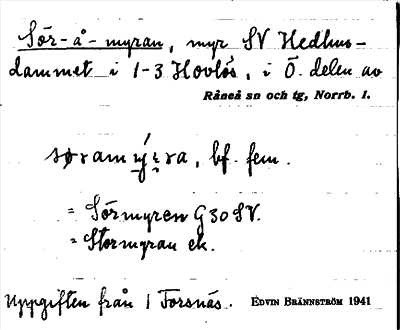 Sör-å-myran, myr SV Hedhus-
dammet i 1-3 Hovlös, i Ö. delen av
Råneå sn och tg, Norrb. l.
bf. fem.
= Sörmyren G30SV.
= Stormyran ek.
Uppgiften från 1 Forsnäs. EDVIN BRÄNNSTRÖM 1941